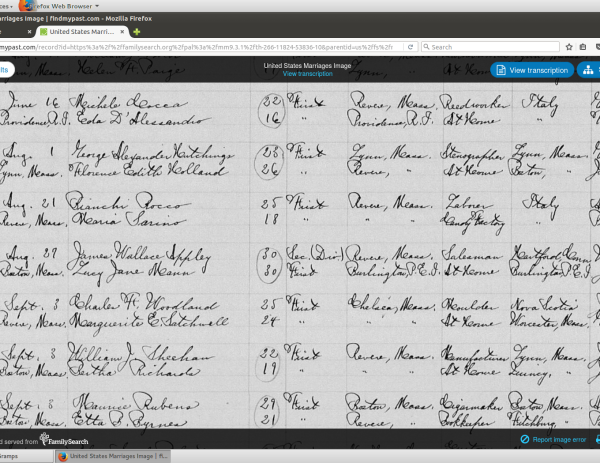 ces▾ Firefox Web Browser ▾
arriages Image | findmypast.com - Mozilla Firefox
United States Marri...
mypast.com/record?id=https%3a%2f%2ffamilysearch.org%2fpal%3a%2fmm9.3.1%2fth-266-11824-53836-10&parentid=us%2ffs%2fr
Search
lts
United States Marriages Image
View transcription
View transcription
S
Helen Paige
June 16 Michele 22 First Revere, Mass. Reedworker Italy
Providence, R.I. Eola D'Alessandro 16 " Providence, R.I. At Home "
Aug. 1 George Alexander Hutchings 28 First Lynn, Mass. Stenographer Lynn, Mass.
Lynn, Mass. Florence Edith Holland 26 " Revere, " At Home Boston, "
Aug. 21 Bianchi Rocco 25 First Revere, Mass. Laborer Italy
Revere, Mass. Maria Sarino 18 " " " Candy Factory "
Aug. 27 James Wallace Appley 30 Sec. (Div.) Revere, Mass. Salesman Hartford, Conn
Boston, Mass. Lucy Jane Mann 30 First Burlington, P.E.I. At Home Burlington, P.E.I.
Sept. 3 Charles H. Woodland 25 First Chelsea, Mass. Moulder Nova Scotia
Revere, Mass. Marguerite E. Satchwell 24 " " " At Home Worcester, Mass.
Sept. 3 William J. Sheehan 22 First Revere, Mass. Manufacturer Lynn, Mass.
Boston, Mass. Bertha Richards 19 " " " At Home Quincy, "
Sept. 8 Maurice Rubens 29 First Boston, Mass. Cigarmaker Boston, Mass.
Boston, Mass. Etta F. Byrnes 21 " Revere, " Bookkeeper Fitchburg, "
d served from FamilySearch
Report image error
Gramps
United States Marriages Image | fi...